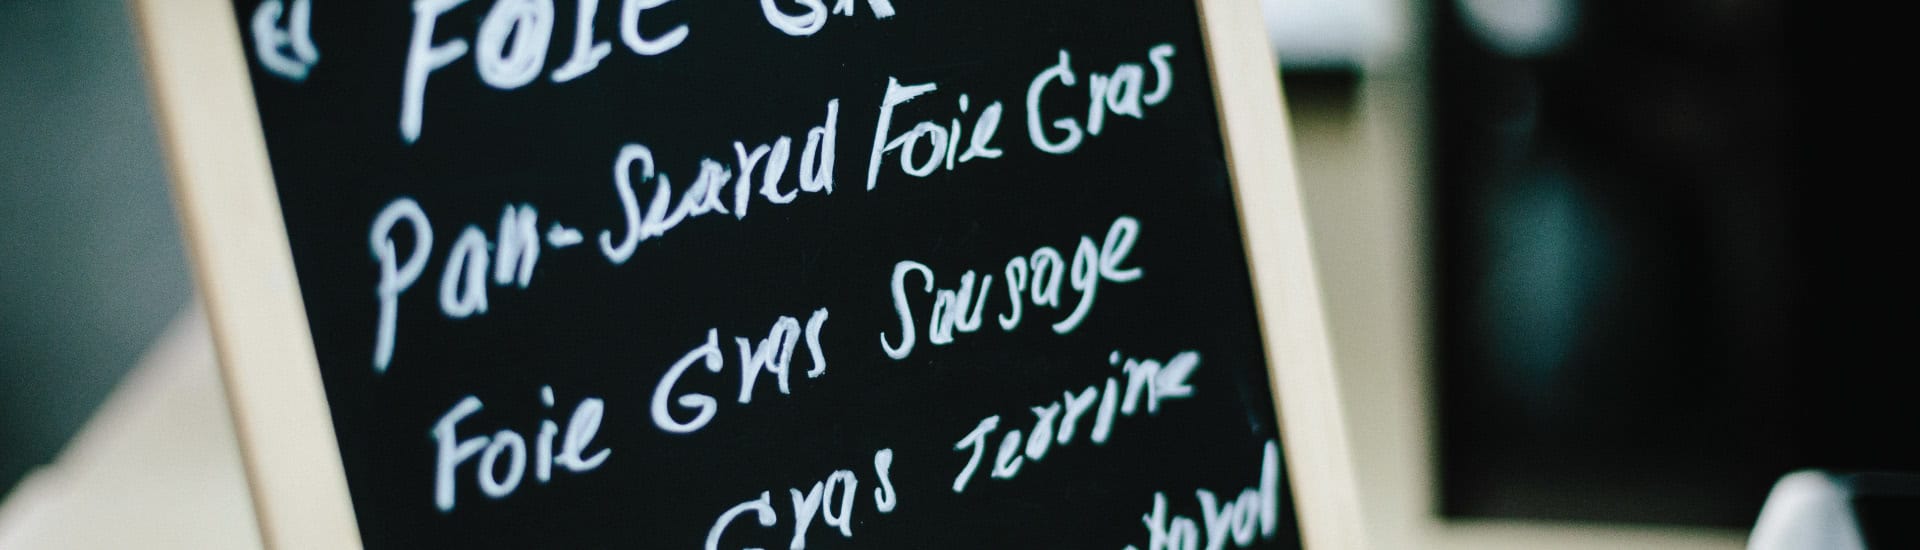 FOIE
Pan-Seared Foie Gras
Foie Gras Sausage
Gras Terrine